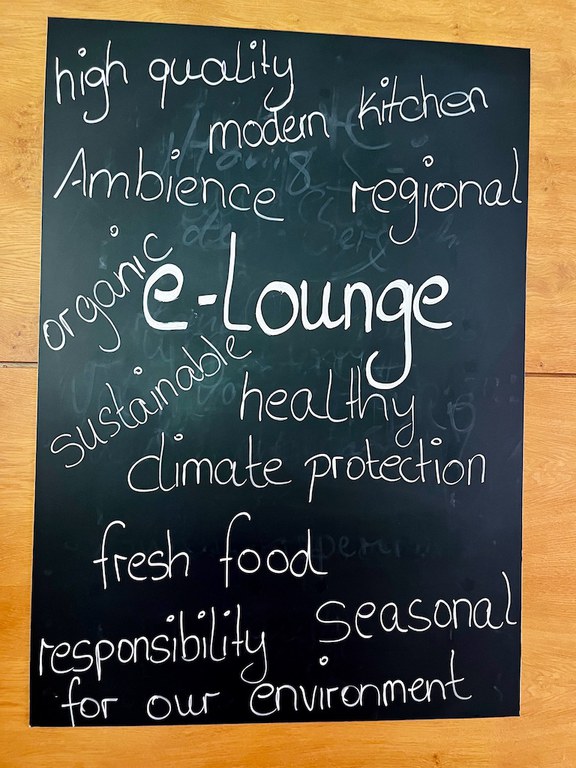 high quality
modern kitchen
Ambience regional
organic
e-Lounge
sustainable
healthy
climate protection
fresh food
seasonal
responsibility
for our environment